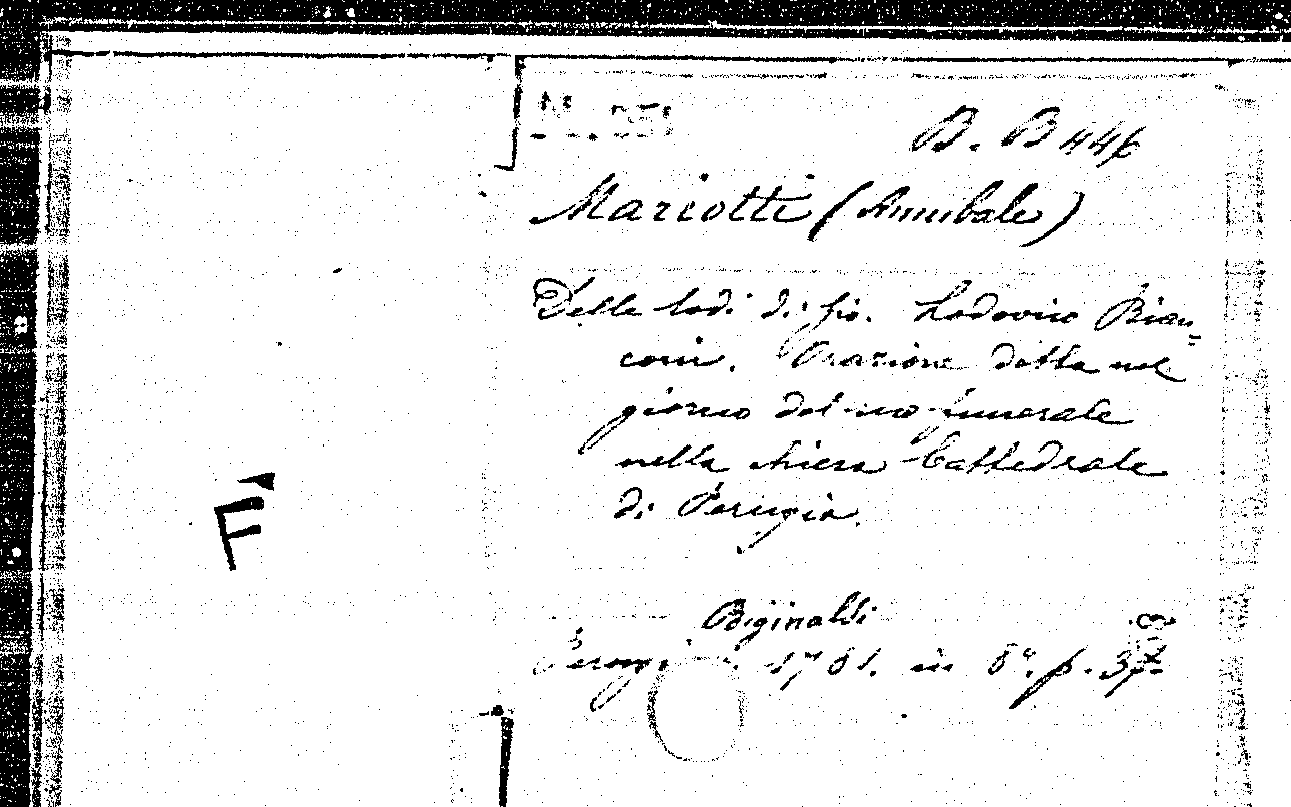 B. B 446
Mariotti (Annibale)
Delle lodi di Gio. Lodovico Bian=
coni. Orazione detta nel
giorno del suo funerale
nella chiesa Cattedrale
di Perugia.
F
Biginaldi
1781. in 8º. p. 37.